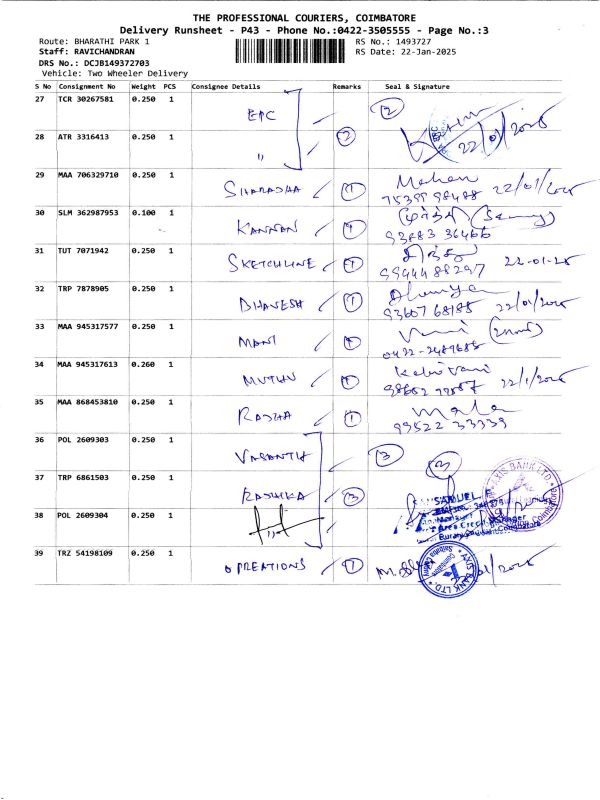 THE PROFESSIONAL COURIERS, COIMBATORE
Delivery Runsheet - P43 - Phone No.:0422-3505555 - Page No.:3
Route: BHARATHI PARK 1 RS No.: 1493727
Staff: RAVICHANDRAN RS Date: 22-Jan-2025
DRS No.: DCJB149372703
Vehicle: Two Wheeler Delivery
S No Consignment No Weight PCS Consignee Details Remarks Seal & Signature
27 TCR 30267581 0.250 1 EPC 2
28 ATR 3316413 0.250 1 " 2 22/01/2025
29 MAA 706329710 0.250 1 SHARADHA 1 Mohan 22/01/2025
30 SLM 362987953 0.100 1 KANNAN 1
93883 36466
31 TUT 7071942 0.250 1 SKETCHLINE 1
99444 88297 22-01-25
32 TRP 7878905 0.250 1 DHANESH 1
93607 68185 22/01/2025
33 MAA 945317577 0.250 1 MANI 1
0422-2489688
34 MAA 945317613 0.260 1 MUTHU 1 22/1/2025
35 MAA 868453810 0.250 1 RADHA 1 Mala
99522 33339
36 POL 2609303 0.250 1 VASANTH 3
37 TRP 6861503 0.250 1 RADHIKA 3 SAMUEL AXIS BANK LTD.
38 POL 2609304 0.250 1
39 TRZ 54198109 0.250 1 OPREATIONS 1 AXIS BANK LTD.